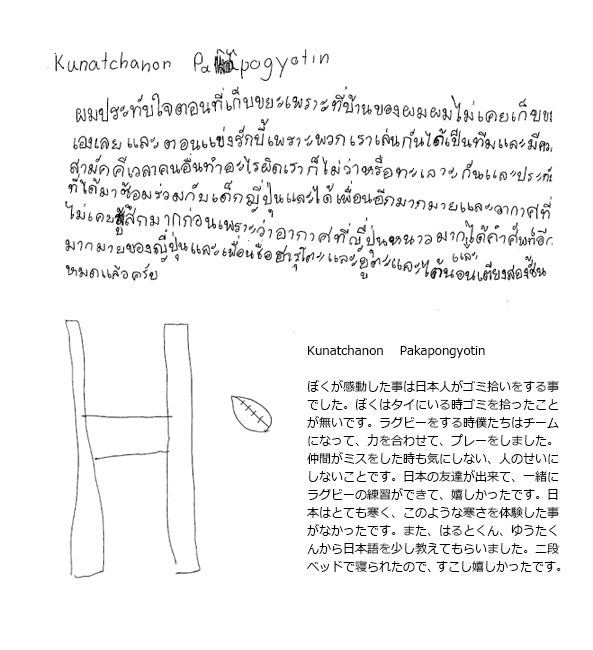 Kunatchanon Pakapogyotin
ผมประทับใจตอนที่เก็บขยะเพราะที่บ้านของผมผมไม่เคยเก็บข
เองเลย และ ตอนแข่งรักบี้เพราะพวกเราเล่นกันได้เป็นทีมและมีควา
สามัคคีเวลาคนอื่นทำอะไรผิดเราก็ไม่ว่าหรือทะเลาะกันและประทับ
ที่ได้มาซ้อมร่วมกับเด็กญี่ปุ่นและได้เพื่อนอีกมากมายและอากาศที่
ไม่เคยรู้สึกมากก่อนเพราะว่าอากาศที่ญี่ปุ่นหนาวมากได้คำศัพท์อีก
มากมายของญี่ปุ่นและเพื่อนชื่อฮารุโตะและยูตะและได้นอนเตียงสองชั้น
หมดแล้วครับ
Kunatchanon Pakapongyotin
ぼくが感動した事は日本人がゴミ拾いをする事
でした。ぼくはタイにいる時ゴミを拾ったこと
が無いです。ラグビーをする時僕たちはチーム
になって、力を合わせて、プレーをしました。
仲間がミスをした時も気にしない、人のせいに
しないことです。日本の友達が出来て、一緒に
ラグビーの練習ができて、嬉しかったです。日
本はとても寒く、このような寒さを体験した事
がなかったです。また、はるとくん、ゆうたく
んから日本語を少し教えてもらいました。二段
ベッドで寝られたので、すこし嬉しかったです。